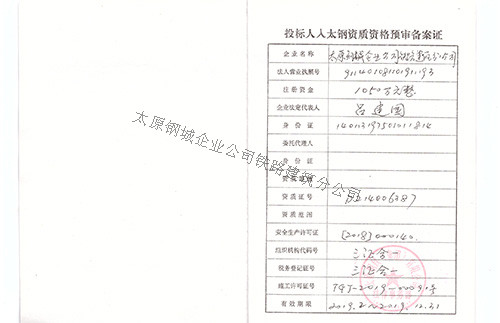 投标人入太钢资质资格预审备案证
企业名称 太原钢城企业公司铁路建筑分公司
法人营业执照号
注册资金 1050万元整
企业法定代表人 吕建国
身份证
委托代理人
身份证
资质等级
资质证号 D214006287
资质范围
安全生产许可证 [2018]000140
组织机构代码号 三证合一
税务登记证号 三证合一
竣工许可证号 TGJ-2019-0009号
有效期限 2019.2~2019.12.31
太原钢城企业公司铁路建筑分公司